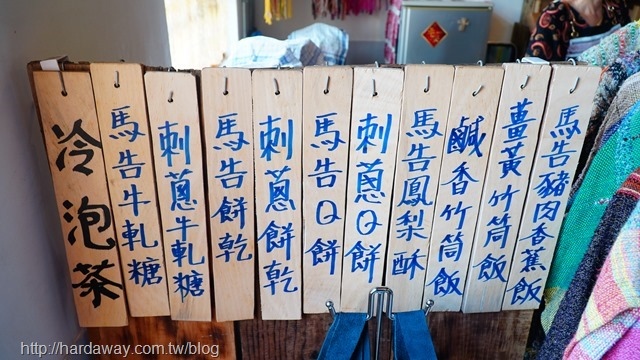 冷泡茶
馬告牛軋糖
刺蔥牛軋糖
馬告餅乾
刺蔥餅乾
馬告Q餅
刺蔥Q餅
馬告鳳梨酥
鹹香竹筒飯
薑黃竹筒飯
馬告豬肉香蕉飯
http://hardaway.com.tw/blog